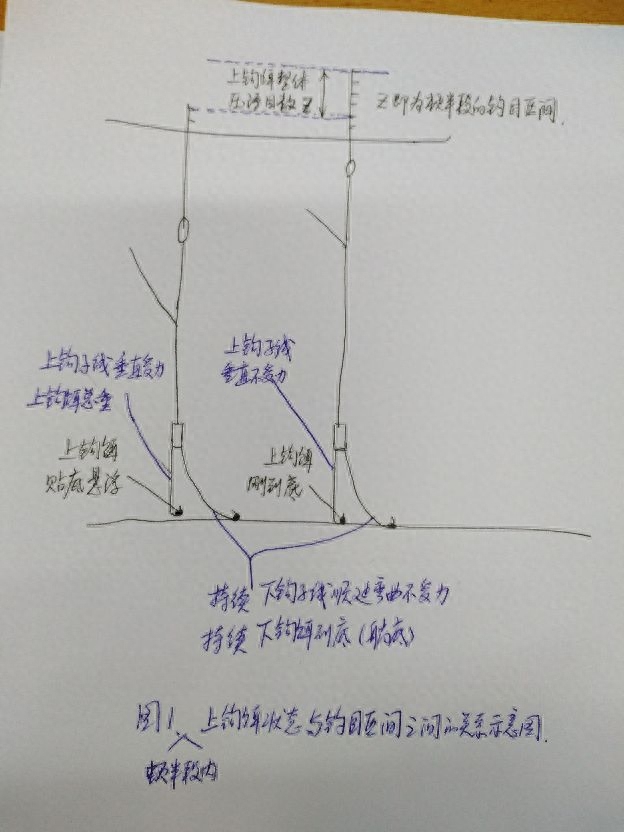 上钩饵整体
压浮目数 Z
Z即为顿半段的钓目区间.
上钩子线垂直受力
上钩饵悬垂
上钩饵
贴底悬浮
上钩子线
垂直不受力
上钩饵
刚到底
持续 下钩子线顺过弯曲不受力
持续 下钩饵到底(躺底)
图1、上钩饵状态与钓目区间之间的关系示意图.
顿半段内